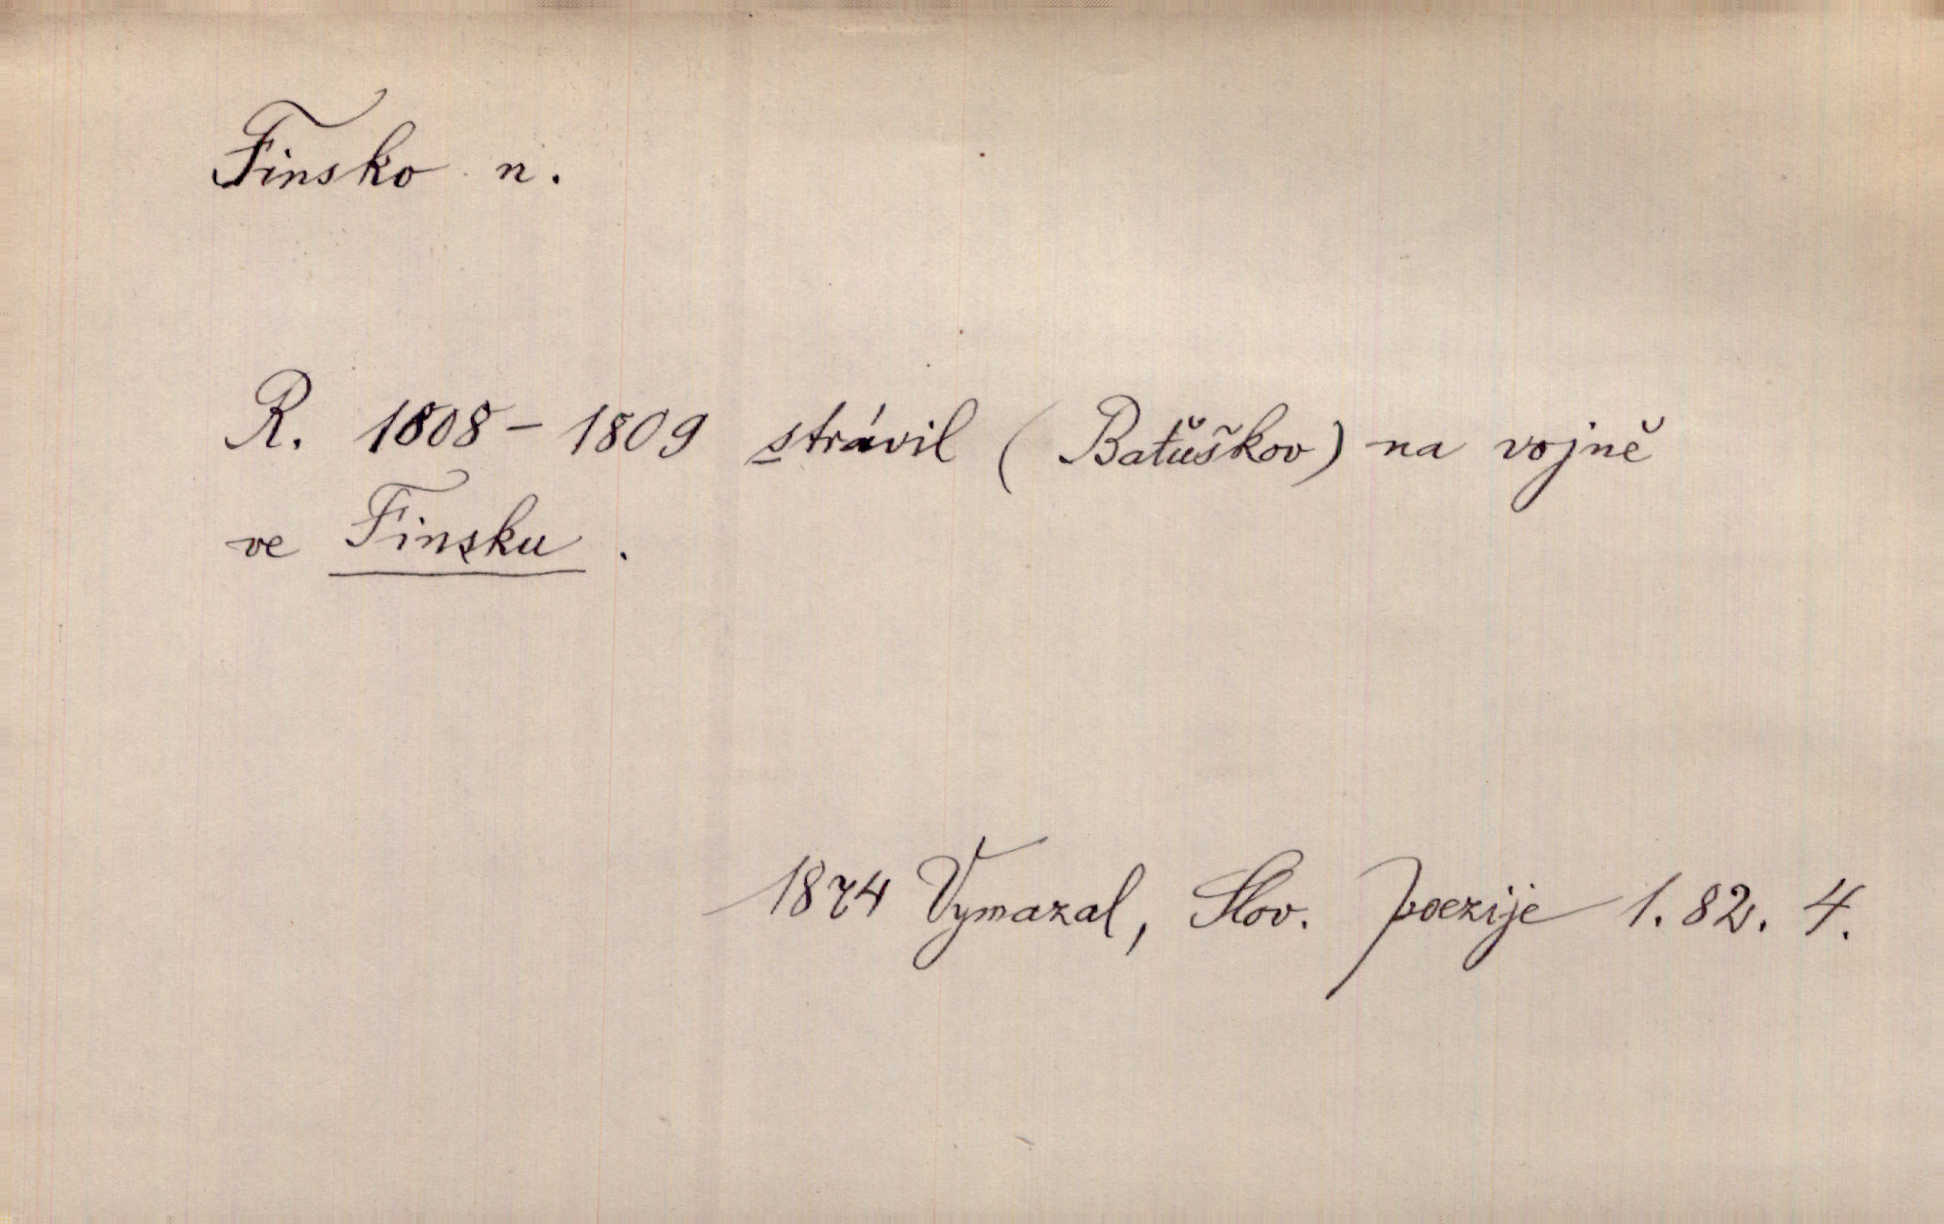 Finsko n.
R. 1808-1809 strávil (Baťuškov) na vojně
ve Finsku.
1874 Vymazal, Slov. poezije 1. 82. 4.